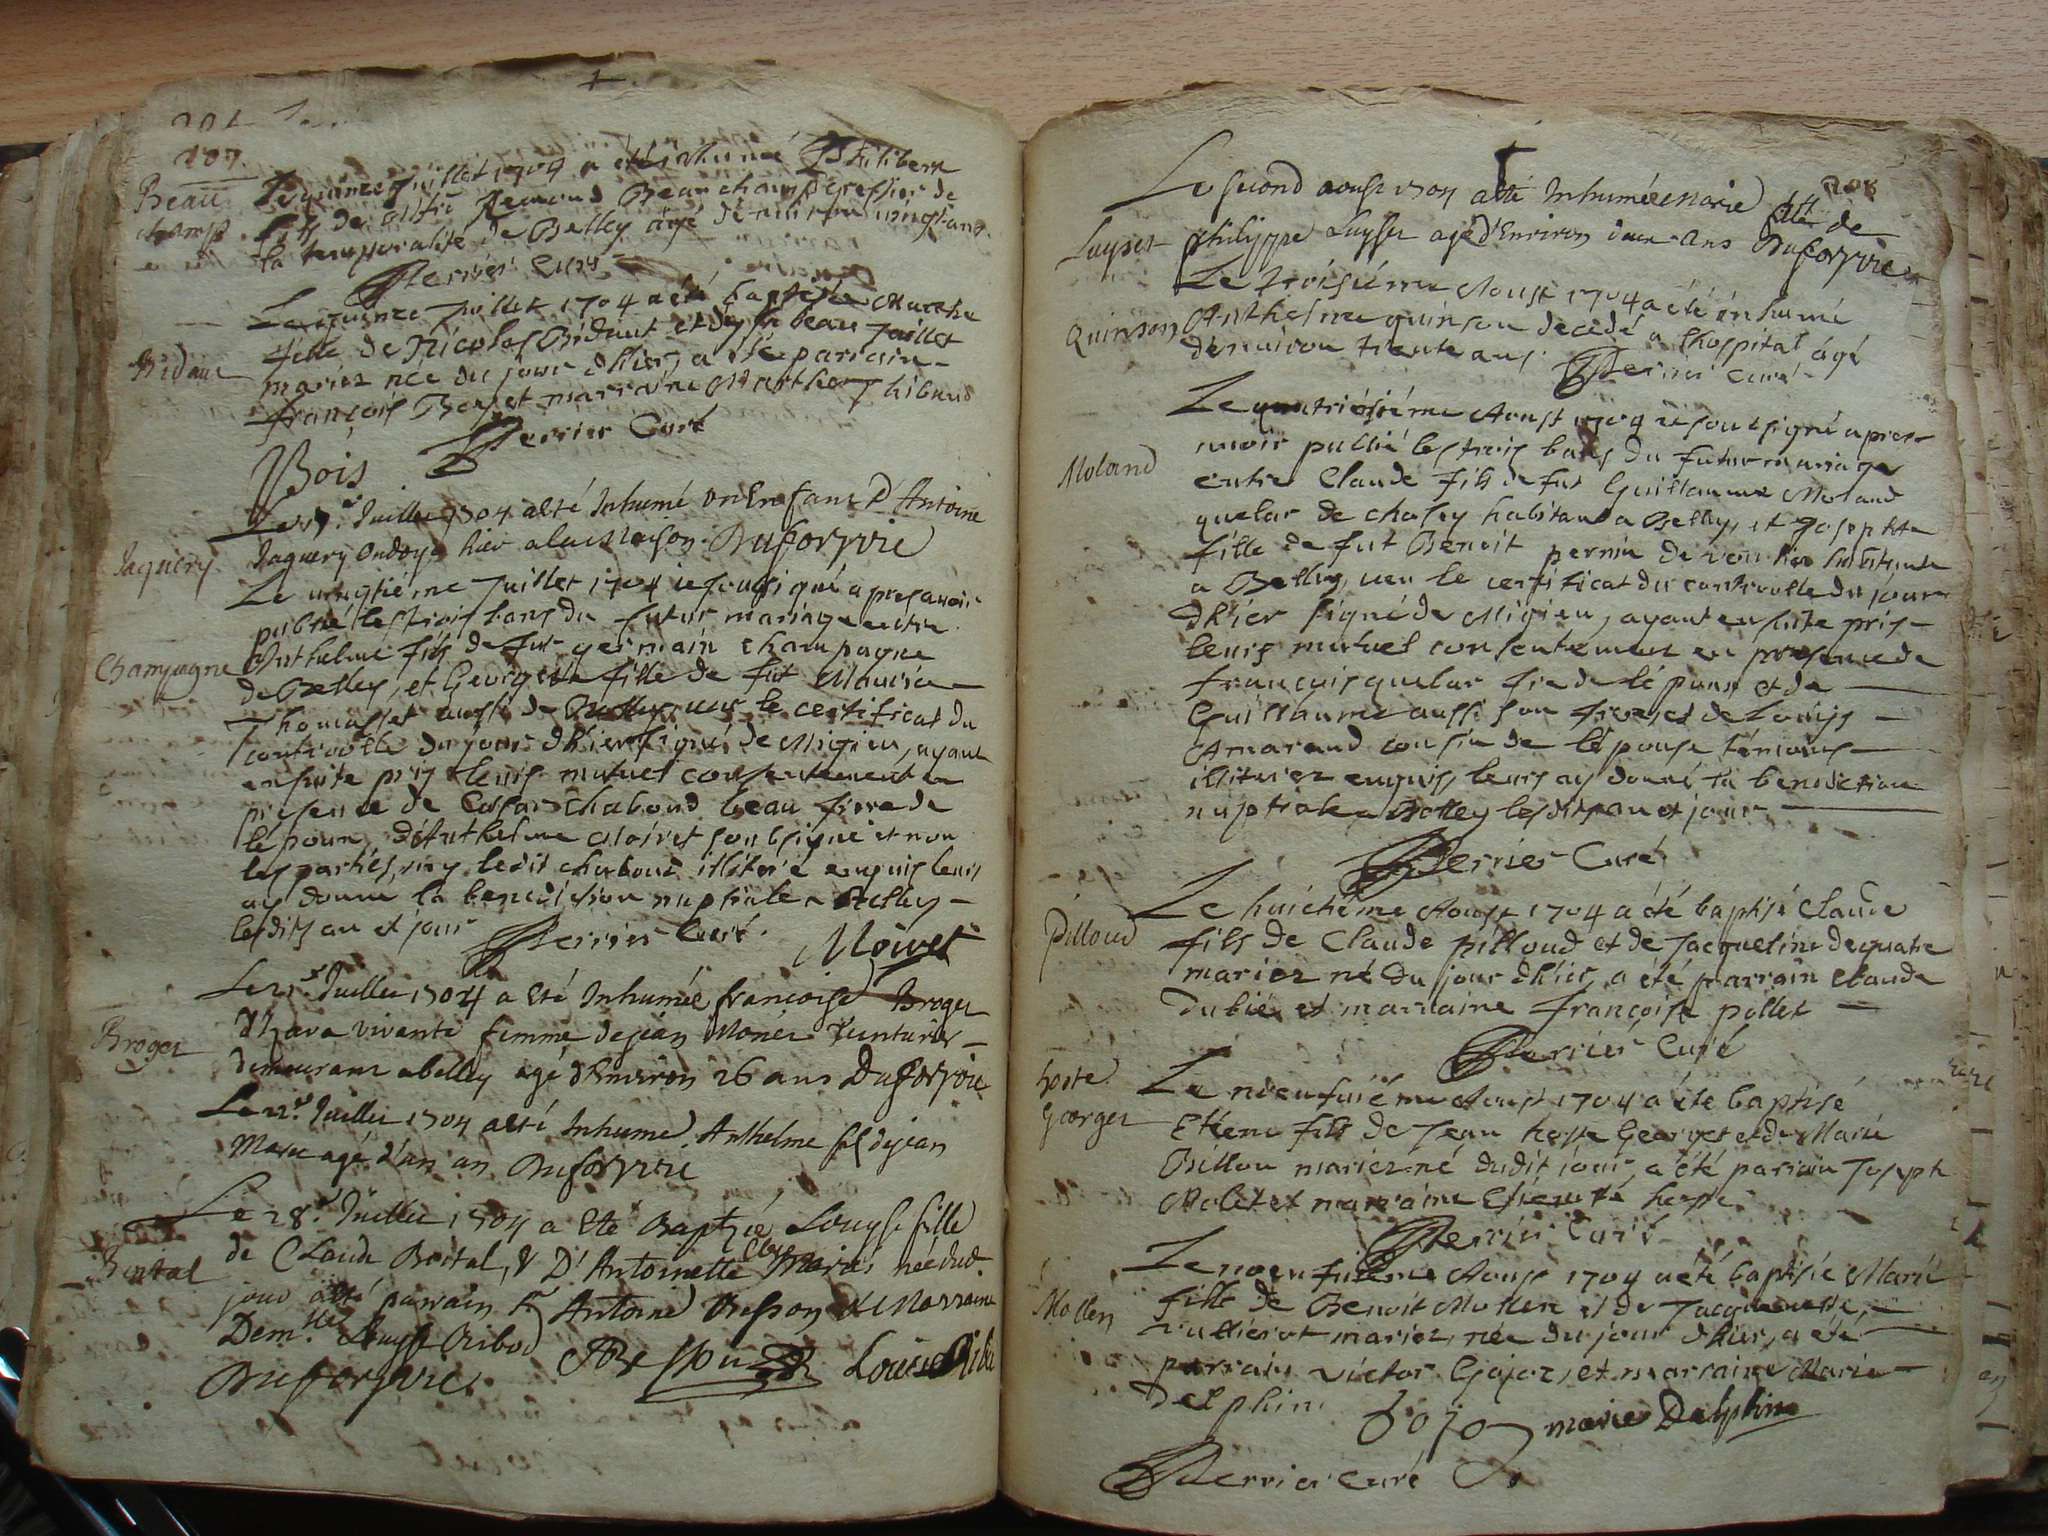 207.
Beau
champ
Le quinze Juillet 1704 a été inhumé Philibert
fils de Remond Beauchamp greffier de
la temporalité de Belley âgé d'environ vingt ans.
Perrier Curé
Bidaut
Le quinze Juillet 1704 a été baptisée Marthe
fille de Nicolas Bidaut et d'Isabeau Juillet
mariez née du jour d'hier, a été parrain
françois Bey et marraine Marthe Thibaud
Bois Perrier Curé
Jaquery
Juillet 1704 a esté Inhumé un Enfant D'Antoine
Jaquery Ondoyé hier a la maison. Duforyvie
Champagne
Le vingtiéme Juillet 1704 je soussigné apres avoir
publié les trois bans du futur mariage entre
Anthelme fils de fut germain Champagne
de Belley, et Georgette fille de fut Maurice
Thomasset aussi de Belley, veu le certificat du
controolle du jour d'hier signé de Migieu, ayant
ensuite pris leurs mutuel consentement en
presence de Chaboud beau frere de
lépoux, d'Anthelme Moivet soubsigné et non
les parties, ny ledit chaboud illitéré enquis leurs
ay donné la benediction nuptiale a Belley
lesdits an et jour Perrier Curé. Moivet
Broger
Le 21e Juillet 1704 a Eté Inhumée francoise Broger
vivante femme de jean Monier
demeurant a belley agé d'Environ 26 ans Duforyvie
Le 22e Juillet 1704 a esté Inhumé Anthelme fils de jean
agé d'un an Duforyvie
Boital
Le 28e Juillet 1704 a Eté Baptisée Louyse fille
de Claude Boital, & D'Antoinette Mariés née dud.
jour a esté parrain Sr Antoine Bresson & Marraine
Demlle Louyse Ribod
Duforyvie Bresson Louise Ribod
208
Luyset
Le second aoust 1704 a esté Inhumée Marie fille de
philippe Luyset agé d'Environ deux ans Duforyvie
Quinson
Le troisiéme Aoust 1704 a été inhumé
Anthelme quinson decedé a l'hospital âgé
d'environ trente ans. Perrier Curé
Moland
Le quatriésiéme Aoust 1704 je soussigné apres
avoir publié les trois bans du futur mariage
entre Claude fils de fut Guillaume Moland
quelar de chasey habitant a Belley, et Josephte
fille de fut Benoit pernin de habitante
a Belley, veu le certificat du controolle du jour
d'hier signé de Migieu, ayant ensuite pris
leurs mutuel consentement en presence de
francois quelar frere de lépoux et de
Guillaume aussi son frere, et de Louys
Amarand cousin de lépouse témoins
illiturez enquis, leurs ay donné la benediction
nuptiale a Belley lesdits an et jour
Perrier Curé
Pilloud
Le huictiéme Aoust 1704 a été baptisé Claude
fils de Claude pilloud et de Jacqueline dequatre
mariez né du jour d'hier, a été parrain Claude
Dubié et marraine françoise pollet
Perrier Curé
hoste
Georges
Le neufuiéme Aoust 1704 a été baptisé
Etiene fils de Jean hoste Georges et de Marie
Billon mariez né dudit jour, a été parrain Joseph
Molet et marraine Etienette hoste
Perrier Curé
Mollen
Le neufuiéme Aoust 1704 a été baptisée Marie
fille de Benoit Mollen et de Jacquemette
vullierot mariez, née du jour d'hier, a été
parrain victor Gojoz, et marraine Marie
delphin.
Gojo marie Delphine
Perrier curé